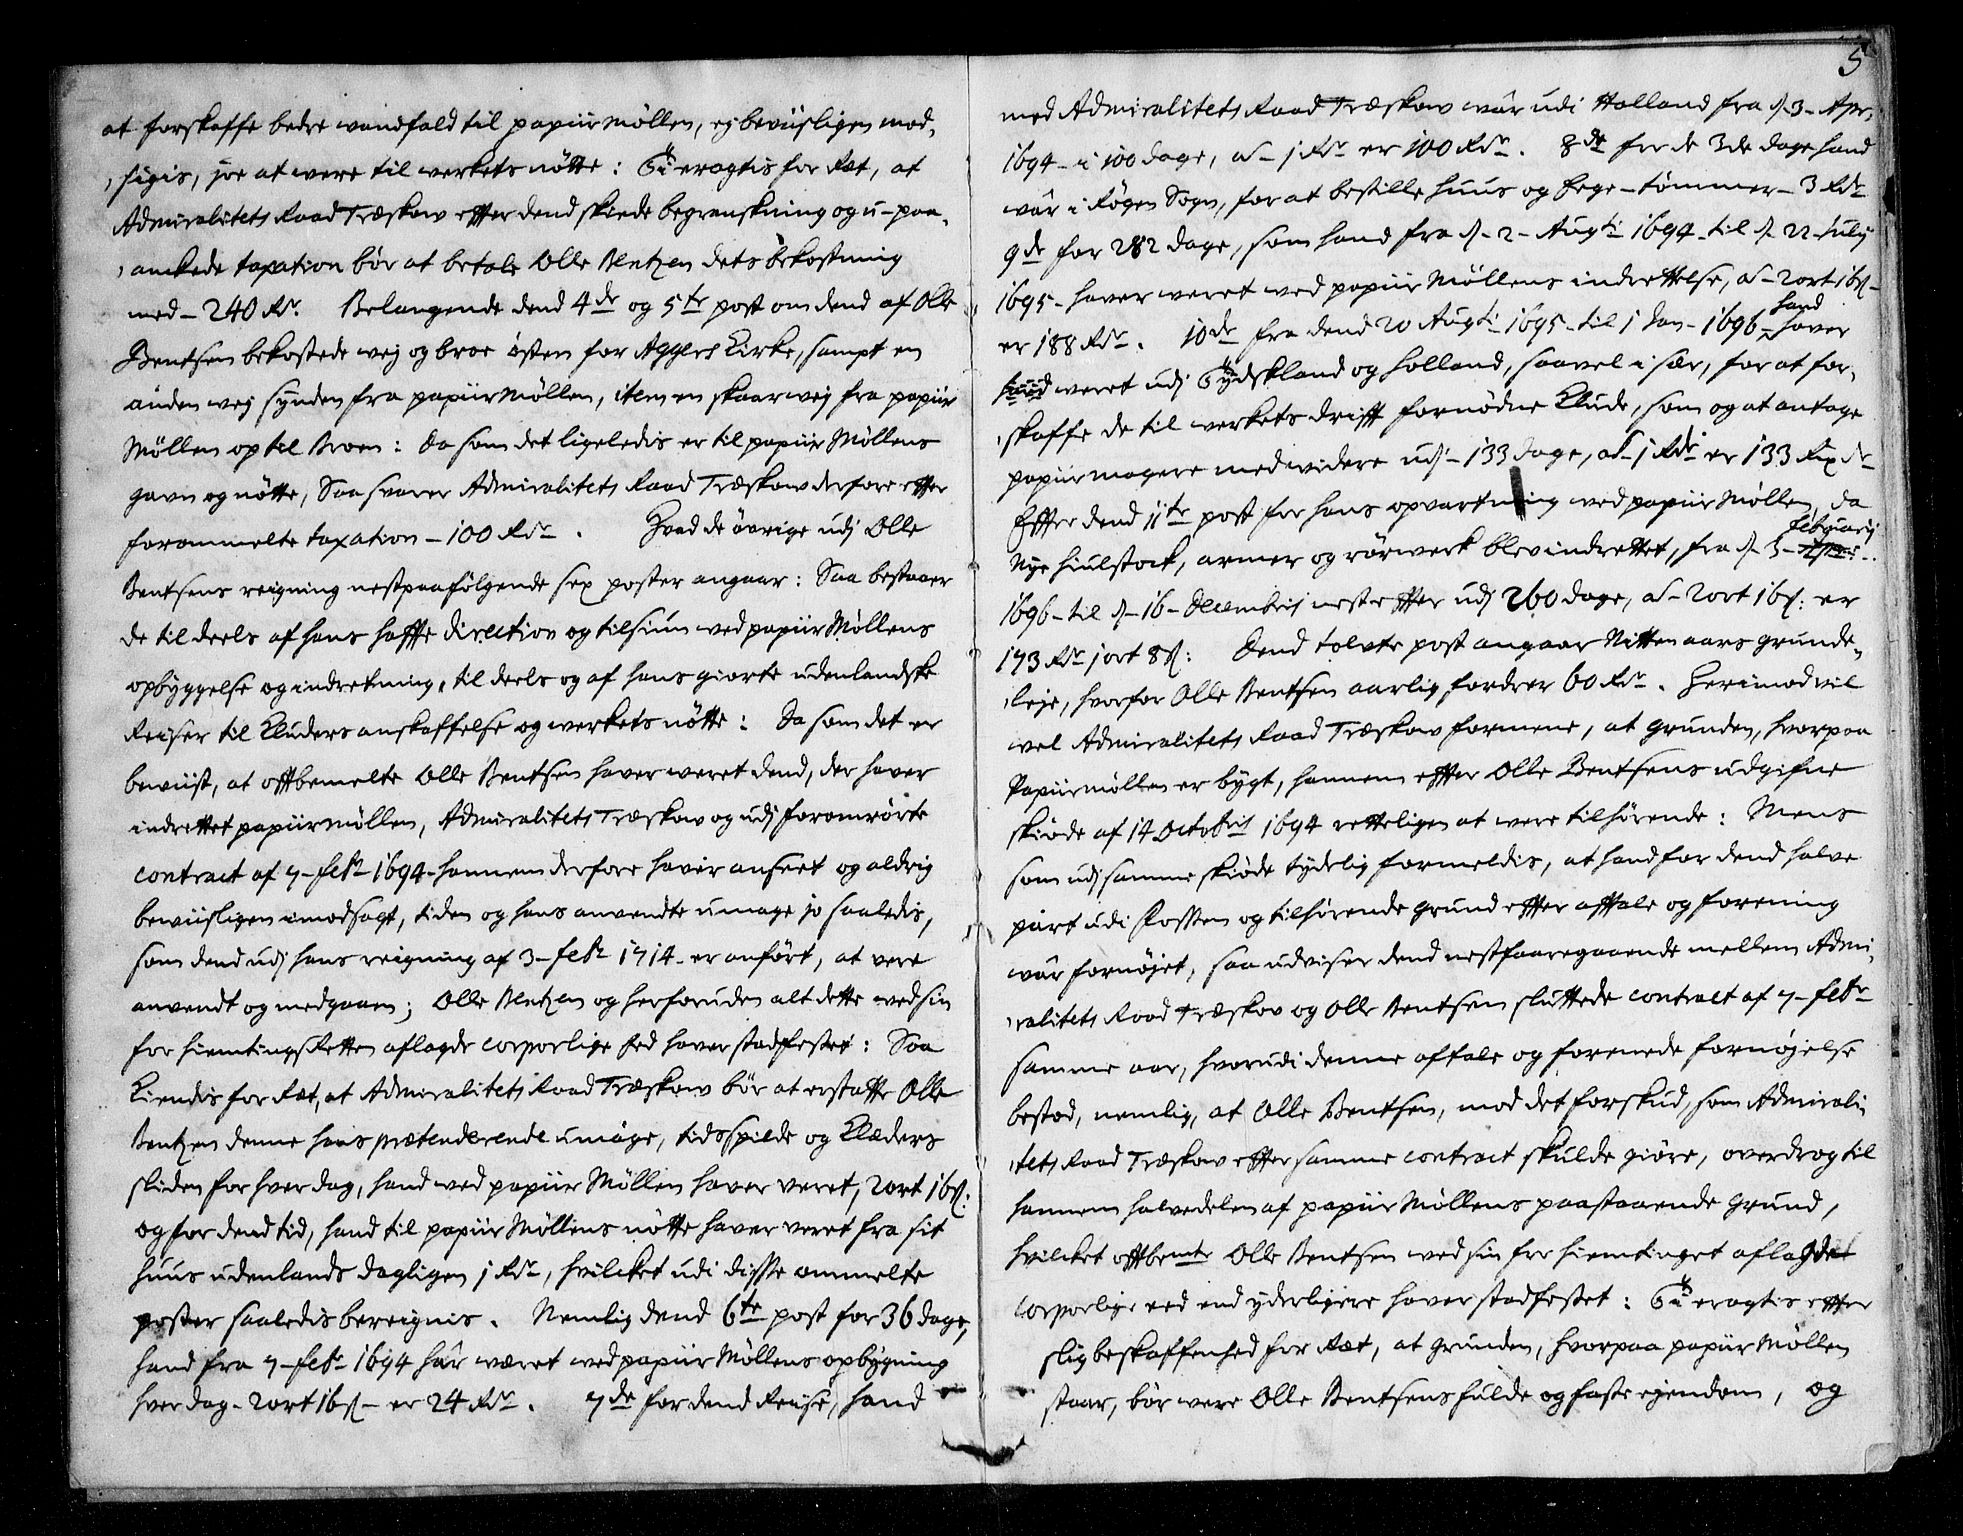 at forskaffe bedre vandfald til papiir møllen, ej beviisligen mod,
,sigis, joe at were til werkets nötte: eragtis for Ræt, at
Admiralitets Raad Træskow effter dend skeede begranskning og u-paa,
,ankede taxation bör at betale Olle Bentzen dets bekostning
med - 240 Rdr. Belangende dend 4de og 5te post om dend af Olle
Bentsen bekostede wej og broe østen for Aggers Kirke, sampt en
anden wej synden fra papiir Møllen, item en skaarwej fra papiir
Møllen op til Broen: Da som det ligeledis er til papiir Møllens
gavn og nötte, Saa svarer Admiralitets Raad Træskow derfore effter
forommelte taxation - 100 Rdr. Hvad de övrige udj Olle
Bentsens reigning nestpaafölgende sex poster angaar: Saa bestaaer
de til deels af hans haffte direction og tilsiun ved papiir Møllens
opbyggelse og indretning, til deels og af hans giorte udenlandske
Reiser til Kluders anskaffelse og werkets nötte: Da som det er
bewiist, at offtbemelte Olle Bentsen hawer weret dend, der hawer
indrettet papiir møllen, Admiralitets Træskow og udj foromrörte
contract af 7 - febr 1694 - hannem derfore havir anseet og aldrig
bewiisligen imodsagt, tiden og hans anvendte umage jo saaledis,
som dend udj hans reigning af 3 - febr 1714 - er anfört, at vere
anvendt og medgaaen; Olle Bentzen og herforuden alt dette ved sin
for hiemtings Retten aflagde corporlige Eed haver stadfestet: Saa
Kiendis for Ræt, at Admiralitets Raad Træskow bör at erstatte Olle
Bentzen denne hans prætenderende umage, tidsspilde og Klæders
sliden for hver dag, hand wed papiir Møllen hawer weret, 2 ort 16 s:
og for dend tid, hand til papiir Møllens nötte hawer veret fra sit
huus udenlands dagligen 1 Rdr, hvilcket udi disse ommelte
poster saaledis bereignis. Nemlig dend 6te post for 36 dage,
hand fra 7 - febr 1694 har været wed papiir Møllens opbygning
hver dag - 2 ort 16 s - er 24 Rdr. 7de for dend Reise, hand
5
med Admiralitets Raad Træskow war udi Holland fra d. 3 - Apr,
1694 - i 100 dage, a - 1 Rdr er 100 Rdr. 8de for de 3de dage hand
war i Røgen Sogn, for at bestille huus og Eege-tömmer - 3 Rdr
9de for 282 dage, som hand fra d. 2 - Augti 1694 - til d. 22 July
1695 - hawer weret wed papiir Møllens indrettelse, a - 2 ort 16 s -
er 188 Rdr. 10de fra dend 20 Augti 1695 - til 1 Jan - 1696 - hand hawer
weret udj Tydskland og Holland, saavel i sær, for at for,
,skaffe de til werkets drifft fornødne Klude, som og at antage
papiirmagere med widere udj - 133 dage, a - 1 Rdr er 133 Rix dr
Effter dend 11te post for hans opvartning wed papiir Møllen, da
Nye hiulstock, armer og rörwerk blev indrettet, fra d. 3 - februarij
1696 - til d - 16 - Decembris nesteffter udj 260 dage, a - 2 ort 16 s: er
173 Rdr 1 ort 8 s: Dend tolvte post angaar Nitten aars grunde,
,leje, hvorfor Olle Bentsen aarlig fordrer 60 Rdr. Herimod vil
vel Admiralitets Raad Træskow formene, at grunden, hvorpaa
Papiirmøllen er bygt, hannem effter Olle Bentsens udgifne
skiøde af 14 Octobris 1694 retteligen at were tilhørende: Mens
som udj samme skiøde tydelig formeldis, at hand for dend halve
part udi Fossen og tilhörende grund effter afftale og forening
war fornøjet, saa udviser dend nestfaaregaaende mellem Admi,
,ralitets Raad Træskow og Olle Bentsen sluttede contract af 7 - febr
samme aar, hvorudi denne aftale og forenede fornøjelse
bestod, nemlig, at Olle Bentsen, mod det forskud, som Admirali
,tets Raad Træskow effter samme contract skulde giöre, overdrog til
hannem halvedelen af papiir Møllens paastaaende grund,
hvilcket offtbemte Olle Bentsen wed sin for hiemtinget aflagde
corporlige eed end yderligere hawer stadfestet: eragtis effter
slig beskaffenhed for Ræt, at grunden, hvorpaa papiir Møllen
staar, bör were Olle Bentsens fulde og faste ejendom, og